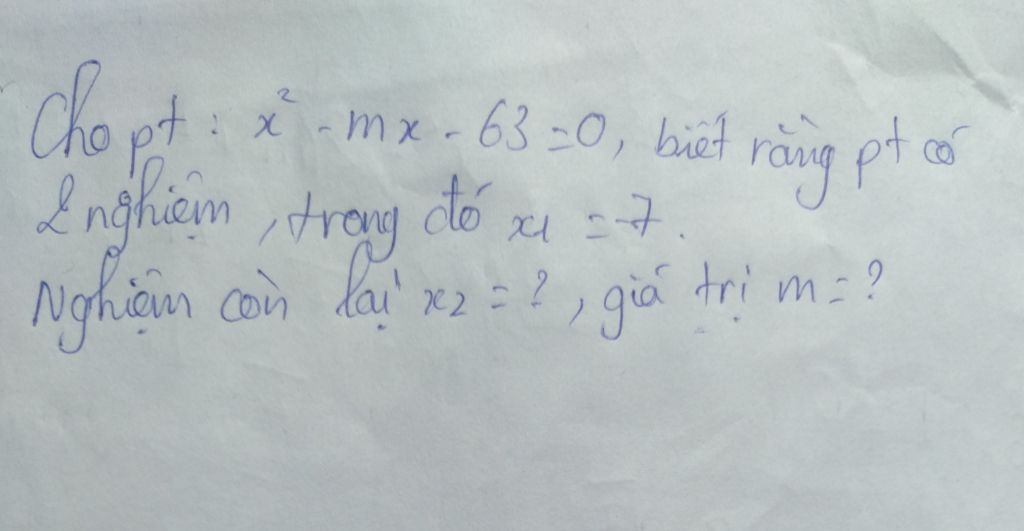 Cho pt: x² - mx - 63 = 0, biết rằng pt có
2 nghiệm, trong đó x1 = -7.
Nghiệm còn lại x2 = ?, giá trị m = ?